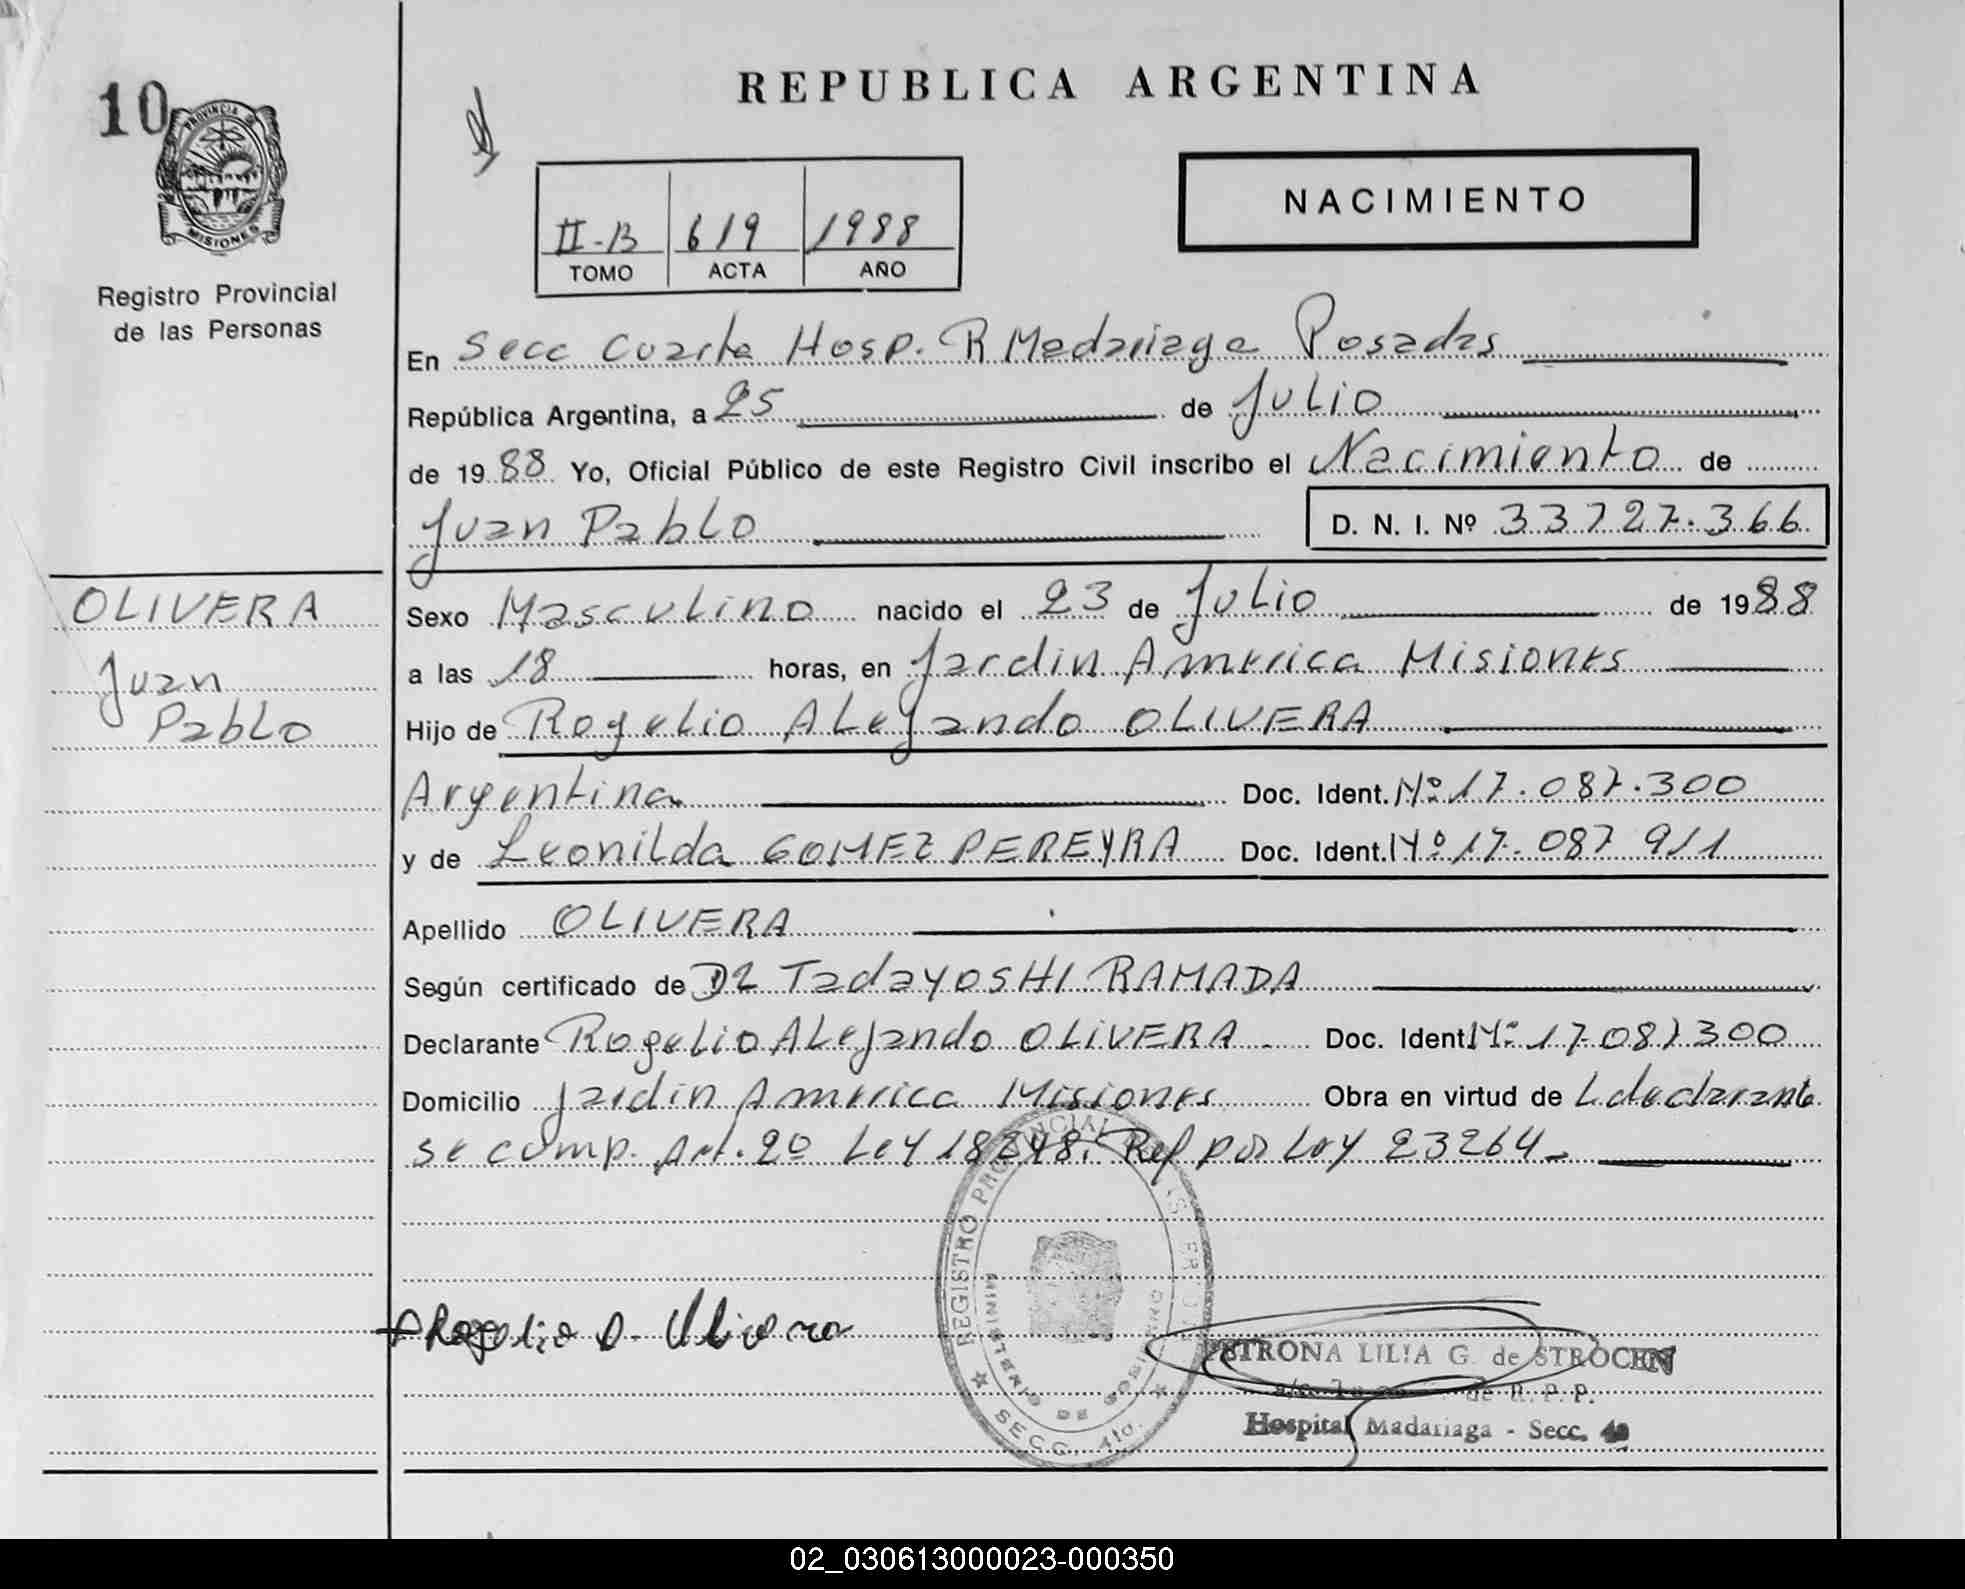 10
PROVINCIA DE
MISIONES
Registro Provincial
de las Personas
REPUBLICA ARGENTINA
II-B 619 1988
TOMO ACTA AÑO
NACIMIENTO
En Secc Cuarta Hosp. R Madariaga Posadas
República Argentina, a 25 de Julio
de 1988 Yo, Oficial Público de este Registro Civil inscribo el Nacimiento de
Juan Pablo D. N. I. Nº 33727.366
OLIVERA
Juan
Pablo
Sexo Masculino nacido el 23 de Julio de 1988
a las 18 horas, en Jardin America Misiones
Hijo de Rogelio Alejando OLIVERA
Argentina Doc. Ident. Nº 17.087.300
y de Leonilda GOMEZ PEREYRA Doc. Ident. Nº 17.087 911
Apellido OLIVERA
Según certificado de Dr Tadayoshi RAMADA
Declarante Rogelio Alejando OLIVERA Doc. Ident. Nº 17.087300
Domicilio Jardin America Misiones Obra en virtud de L declarante
se comp. Art. 2º Ley 18248. Ref por Ley 23264
REGISTRO PROVINCIAL
MINISTERIO DE GOBIERNO
SECC. 4ta.
Rogelio A. Olivera
PETRONA LILIA G. de STROCEN
de R. P. P.
Hospital Madariaga - Secc. 4a
02_030613000023-000350